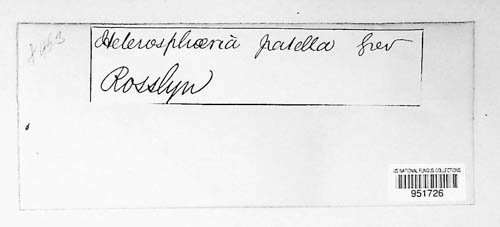 Heterosphæria patella Grev
Rosslyn
US NATIONAL FUNGUS COLLECTIONS
951726